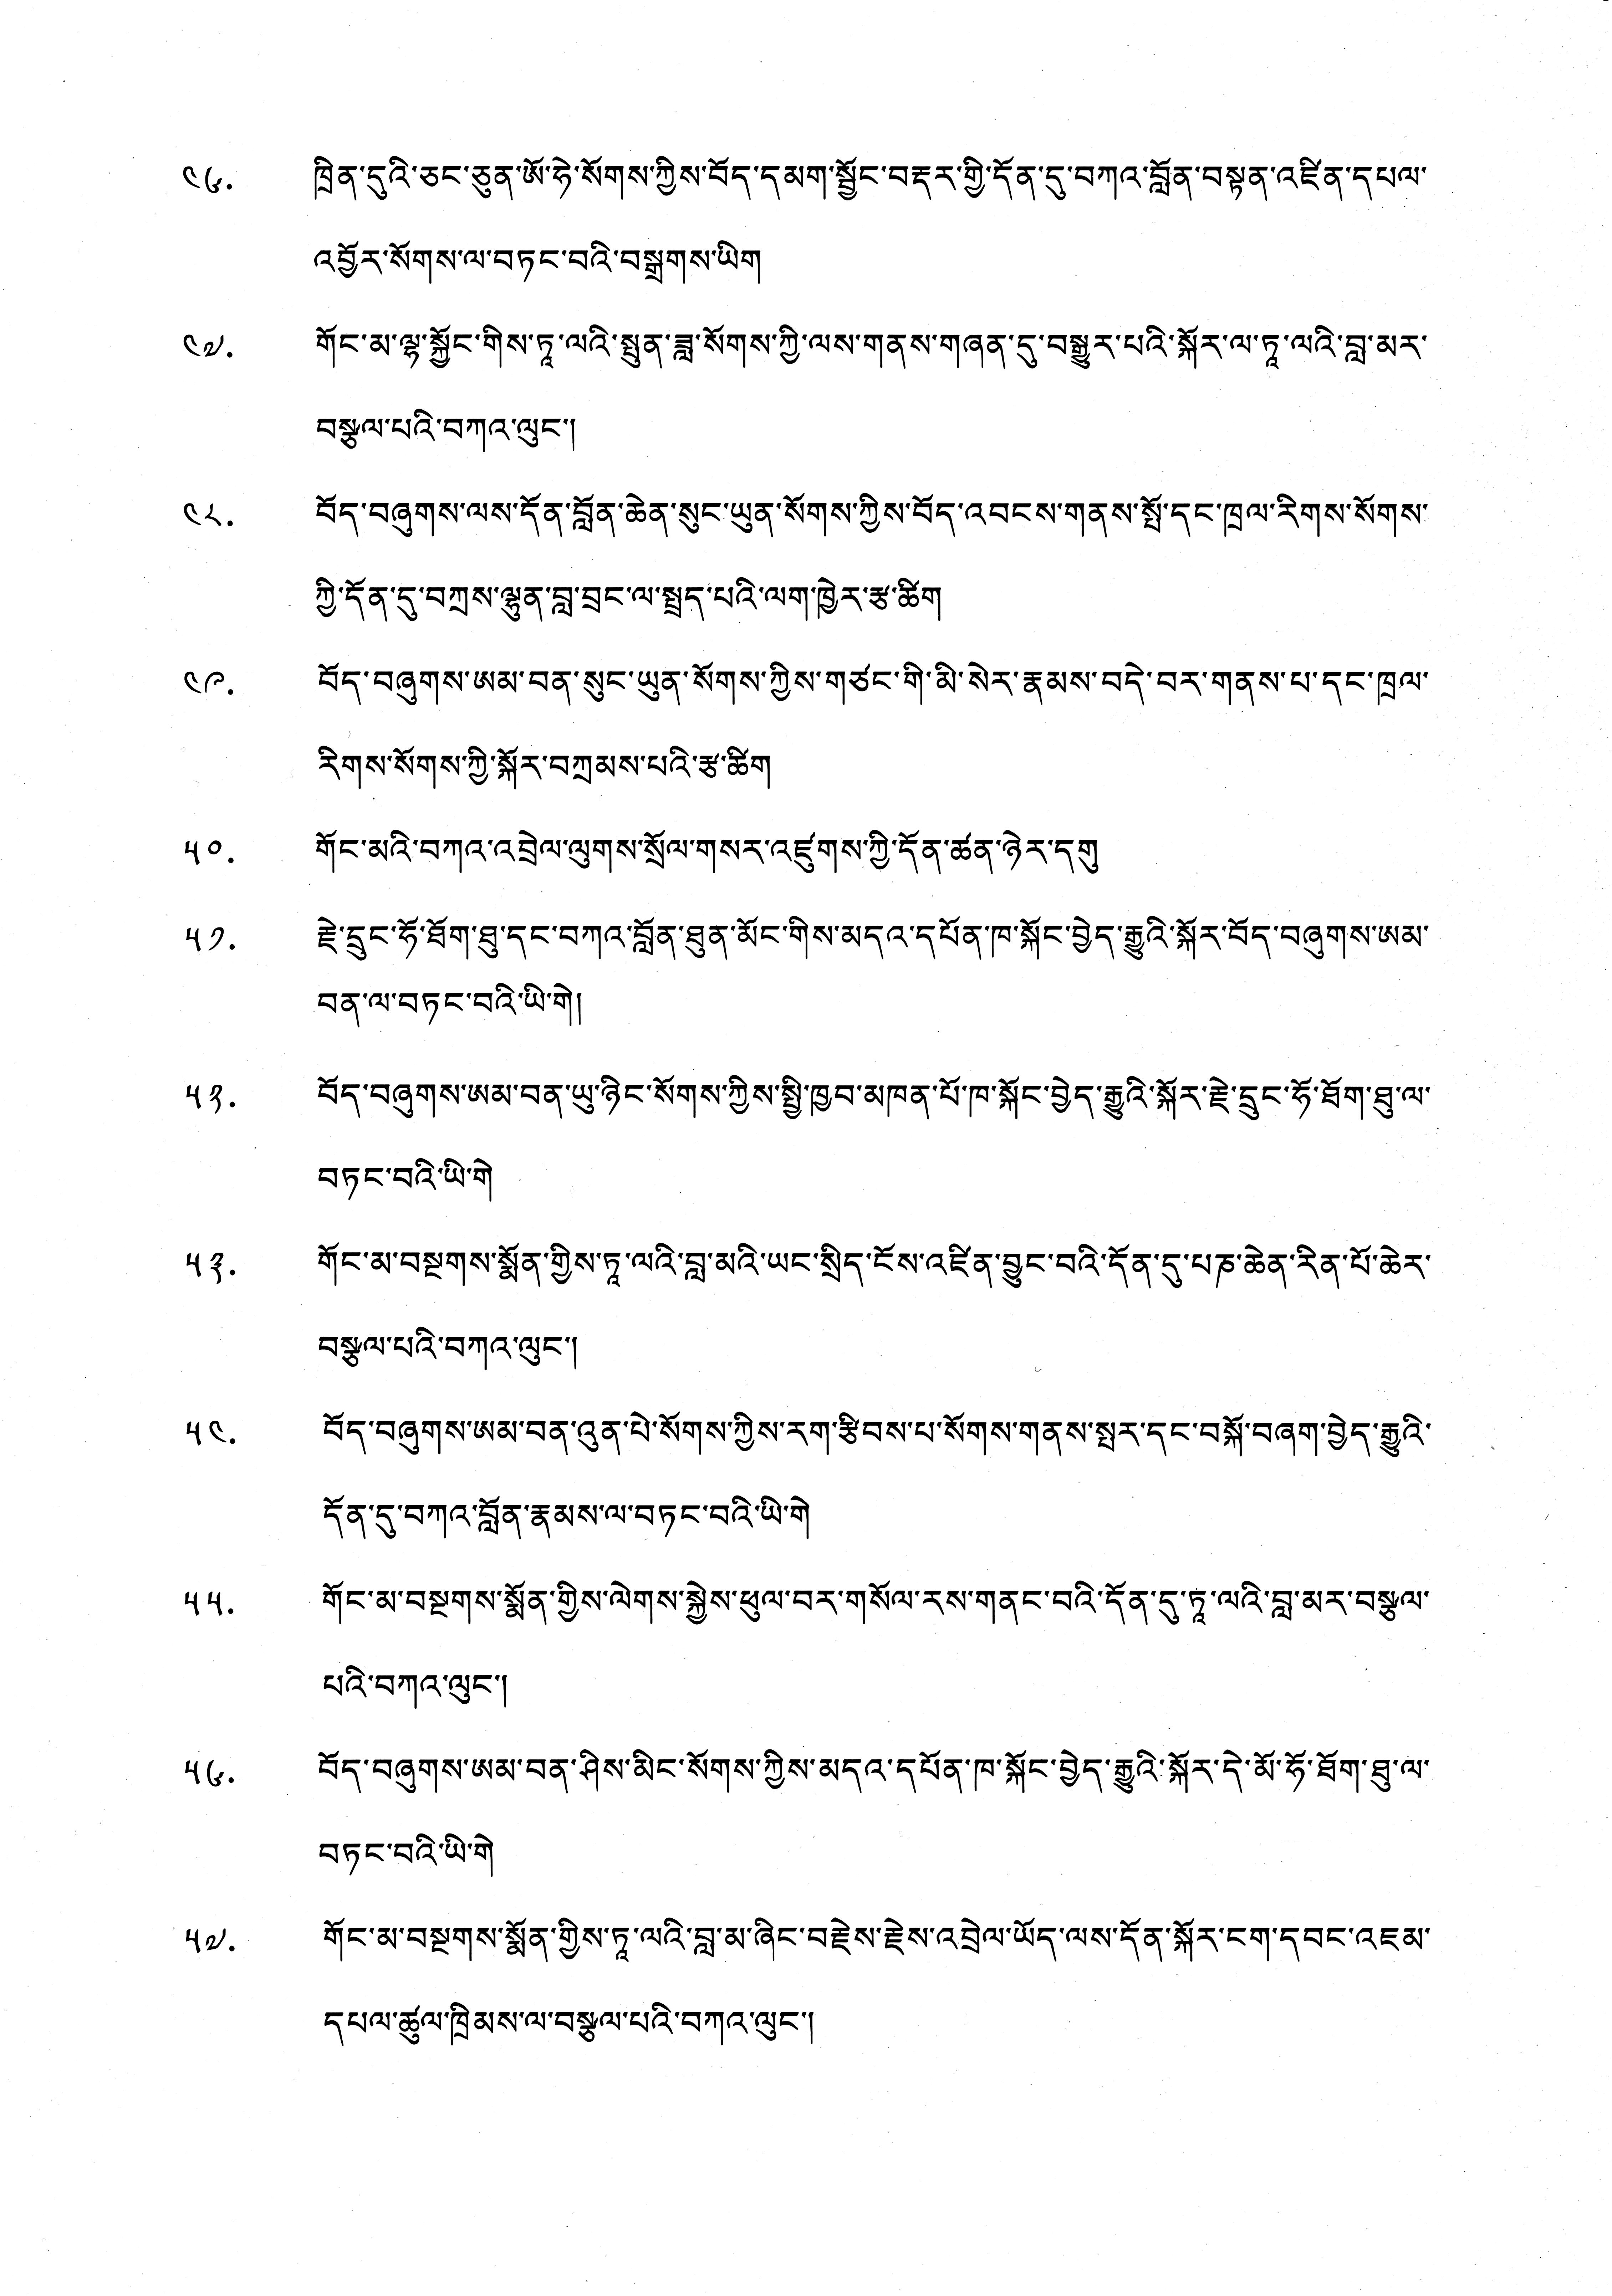 ༤༦. ཁྲིན་དུའི་ཅང་ཅུན་ཨོ་ཧེ་སོགས་ཀྱིས་བོད་དམག་སྦྱོང་བརྡར་གྱི་དོན་དུ་བཀའ་བློན་བསྟན་འཛིན་དཔལ་
འབྱོར་སོགས་ལ་བཏང་བའི་བསྒྲགས་ཡིག
༤༧. གོང་མ་ལྷ་སྐྱོང་གིས་ཏཱ་ལའི་སྤུན་ཟླ་སོགས་ཀྱི་ལས་གནས་གཞན་དུ་བསྒྱུར་པའི་སྐོར་ལ་ཏཱ་ལའི་བླ་མར་
བསྩལ་པའི་བཀའ་ལུང་།
༤༨. བོད་བཞུགས་ལས་དོན་བློན་ཆེན་སུང་ཡུན་སོགས་ཀྱིས་བོད་འབངས་གནས་སྤོ་དང་ཁྲལ་རིགས་སོགས་
ཀྱི་དོན་དུ་བཀྲས་ལྷུན་བླ་བྲང་ལ་སྤྲད་པའི་ལག་ཁྱེར་རྩ་ཚིག
༤༩. བོད་བཞུགས་ཨམ་བན་སུང་ཡུན་སོགས་ཀྱིས་གཙང་གི་མི་སེར་རྣམས་བདེ་བར་གནས་པ་དང་ཁྲལ་
རིགས་སོགས་ཀྱི་སྐོར་བཀྲམས་པའི་རྩ་ཚིག
༥༠. གོང་མའི་བཀའ་འབྲེལ་ལུགས་སྲོལ་གསར་འཛུགས་ཀྱི་དོན་ཚན་ཉེར་དགུ
༥༡. རྗེ་དྲུང་ཧོ་ཐོག་ཐུ་དང་བཀའ་བློན་ཐུན་མོང་གིས་མདའ་དཔོན་ཁ་སྐོང་བྱེད་རྒྱུའི་སྐོར་བོད་བཞུགས་ཨམ་
བན་ལ་བཏང་བའི་ཡི་གེ།
༥༢. བོད་བཞུགས་ཨམ་བན་ཡུ་ཉིང་སོགས་ཀྱིས་སྤྱི་ཁྱབ་མཁན་པོ་ཁ་སྐོང་བྱེད་རྒྱུའི་སྐོར་རྗེ་དྲུང་ཧོ་ཐོག་ཐུ་ལ་
བཏང་བའི་ཡི་གེ
༥༣. གོང་མ་བསྔགས་སྨོན་གྱིས་ཏཱ་ལའི་བླ་མའི་ཡང་སྲིད་ངོས་འཛིན་བྱུང་བའི་དོན་དུ་པཎ་ཆེན་རིན་པོ་ཆེར་
བསྩལ་པའི་བཀའ་ལུང་།
༥༤. བོད་བཞུགས་ཨམ་བན་འུན་པེ་སོགས་ཀྱིས་རག་རྩིབས་པ་སོགས་གནས་སྤར་དང་བསྐོ་བཞག་བྱེད་རྒྱུའི་
དོན་དུ་བཀའ་བློན་རྣམས་ལ་བཏང་བའི་ཡི་གེ
༥༥. གོང་མ་བསྔགས་སྨོན་གྱིས་ལེགས་སྐྱེས་ཕུལ་བར་གསོལ་རས་གནང་བའི་དོན་དུ་ཏཱ་ལའི་བླ་མར་བསྩལ་
པའི་བཀའ་ལུང་།
༥༦. བོད་བཞུགས་ཨམ་བན་ཤིས་མིང་སོགས་ཀྱིས་མདའ་དཔོན་ཁ་སྐོང་བྱེད་རྒྱུའི་སྐོར་དེ་མོ་ཧོ་ཐོག་ཐུ་ལ་
བཏང་བའི་ཡི་གེ
༥༧. གོང་མ་བསྔགས་སྨོན་གྱིས་ཏཱ་ལའི་བླ་མ་ཞིང་བརྗེས་རྗེས་འབྲེལ་ཡོད་ལས་དོན་སྐོར་ངག་དབང་འཇམ་
དཔལ་ཚུལ་ཁྲིམས་ལ་བསྩལ་པའི་བཀའ་ལུང་།